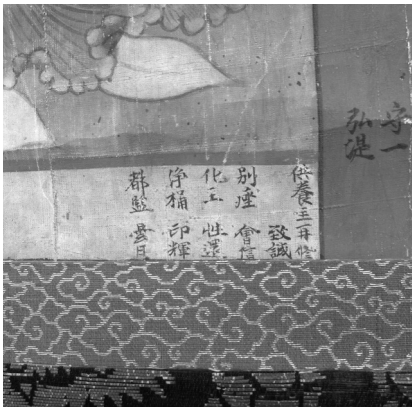 守一
弘湜
供養主
致誠
別座 會信
化主 性還
淨桶 印輝
都監 曇日